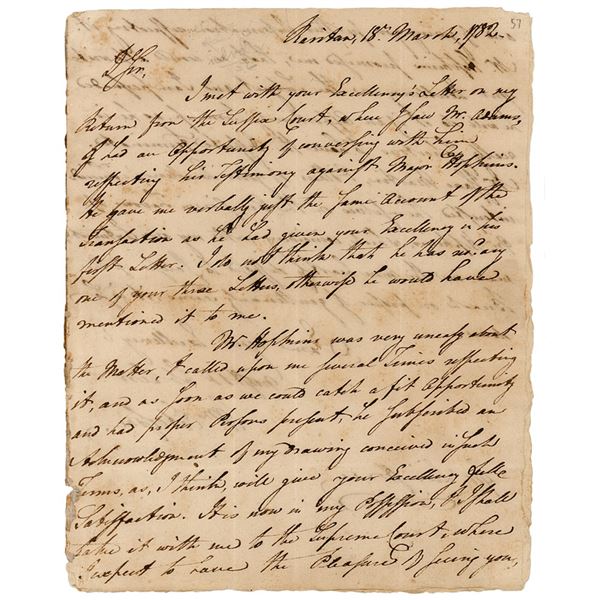 Raritan, 18th March, 1782
57
D Sir,
I met with your Excellency's Letter on my
Return from the Sussex Court, where I saw Mr. Adams,
& had an Opportunity of conversing with him
respecting his Testimony against Major Hopkins.
He gave me verbally just the same Account of the
Transaction as he had given your Excellency in his
first Letter. I do not think that he has recd. any
one of your three Letters, otherwise he would have
mentioned it to me.
Mr. Hopkins was very uneasy about
the Matter, & called upon me several Times respecting
it, and as soon as we could catch a fit Opportunity
and had proper Persons present, he subscribed an
Acknowledgment of my drawing conceived in such
Terms, as, I think, will give your Excellency full
Satisfaction. It is now in my Possession, & I shall
take it with me to the Supreme Court, where
I expect to have the Pleasure of seeing you,